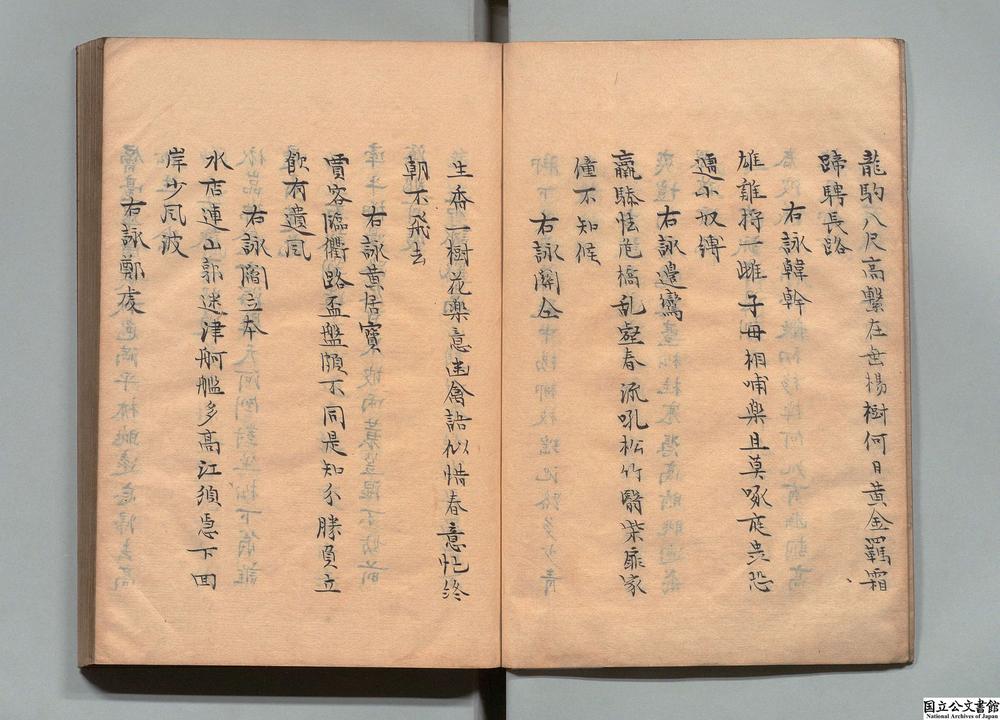 龍駒八尺高繫在垂楊樹何日黃金羈霜
蹄騁長路
右詠韓幹
雄雞將一雌子母相哺樂且莫啄庭蚩恐
遭小奴縛
右詠邊鸞
羸驂怯危橋乱壑春流吼松竹翳柴扉家
僮不知候
右詠關仝
生香一樹花樂意幽禽語似惜春意忙終
朝不飛去
右詠黄居寶
賈客臨衢路盃盤頗不同是知分勝負立
飲有遺風
右詠閻立本
水店連山郭迷津舸艦多高江須急下回
岸少风波
右詠鄭虔
国立公文書館
National Archives of Japan